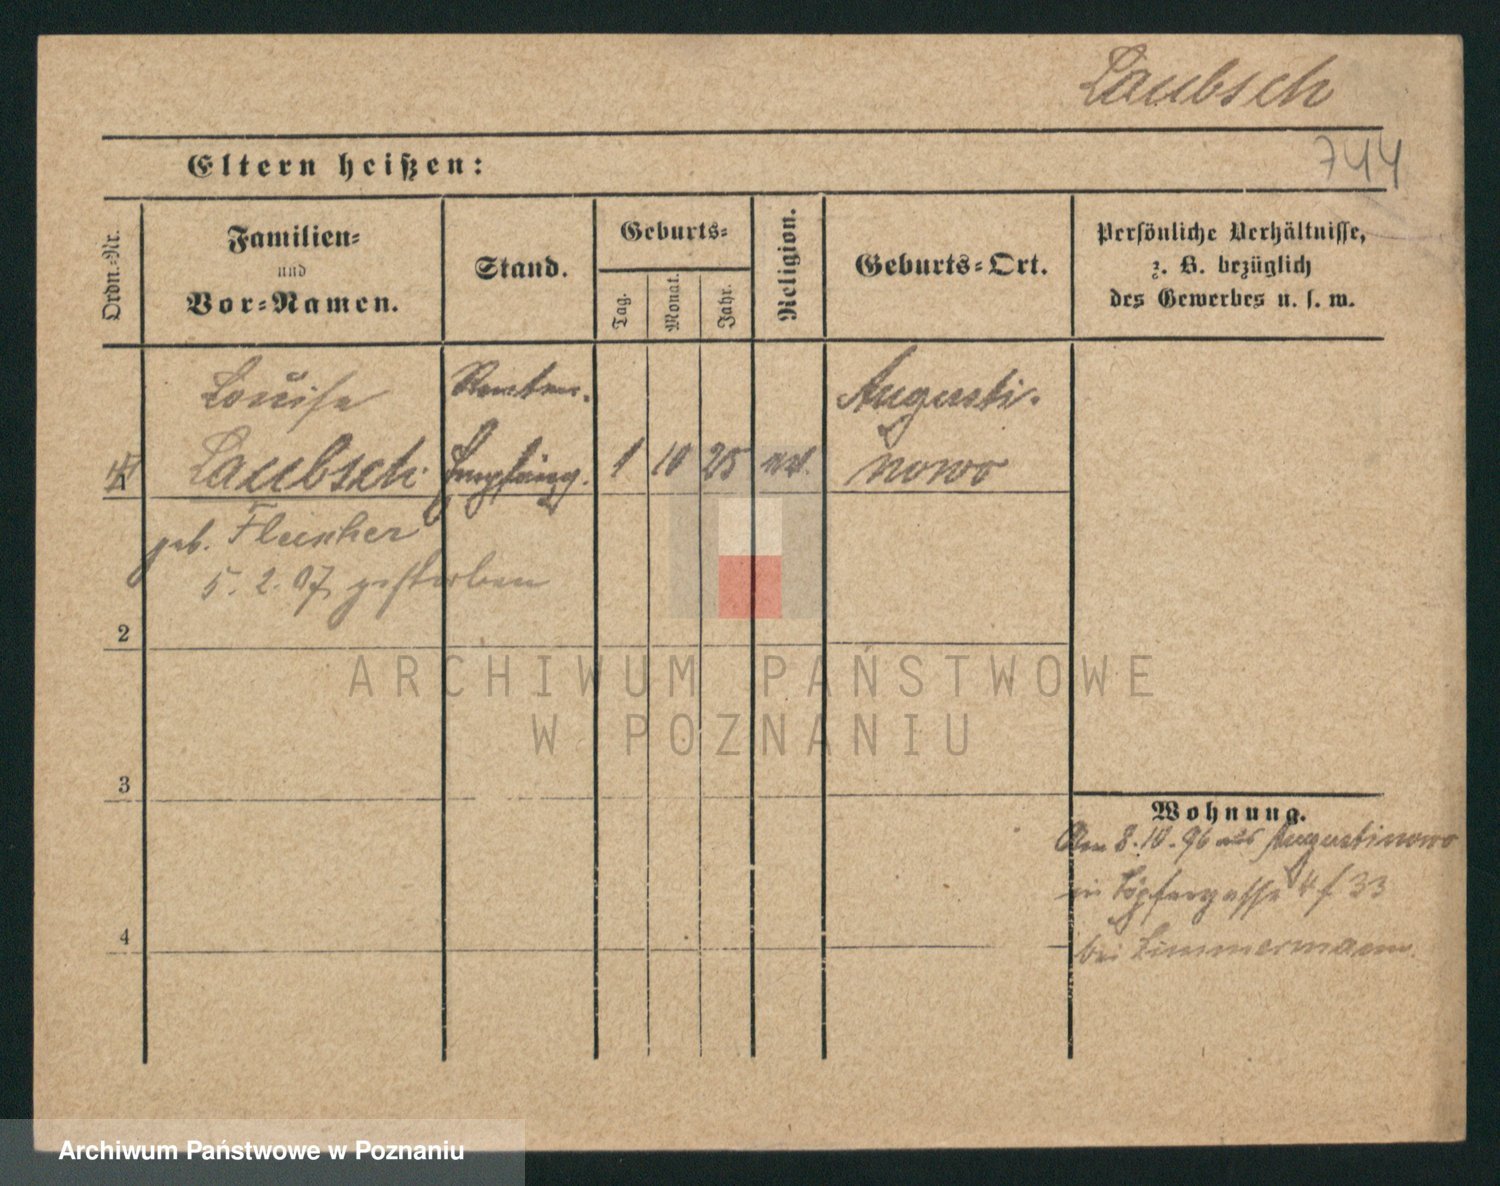 Laubsch
744
Eltern heißen:
Ordn.-Nr.
Familien-
und
Vor-Namen.
Stand.
Geburts-
Tag.
Monat.
Jahr.
Religion.
Geburts-Ort.
Persönliche Verhältnisse,
z. B. bezüglich
des Gewerbes u. s. w.
Louise
Renten.
Augusti-
1
Laubsch
Empfäng.
1
10
25
ev.
nowo
geb.
5. 2. 07 gestorben
2
ARCHIWUM PAŃSTWOWE
W POZNANIU
3
Wohnung.
Am 8.10.96 aus Augustinowo
in Töpfergasse 4 f 33
4
bei Zimmermann.
Archiwum Państwowe w Poznaniu